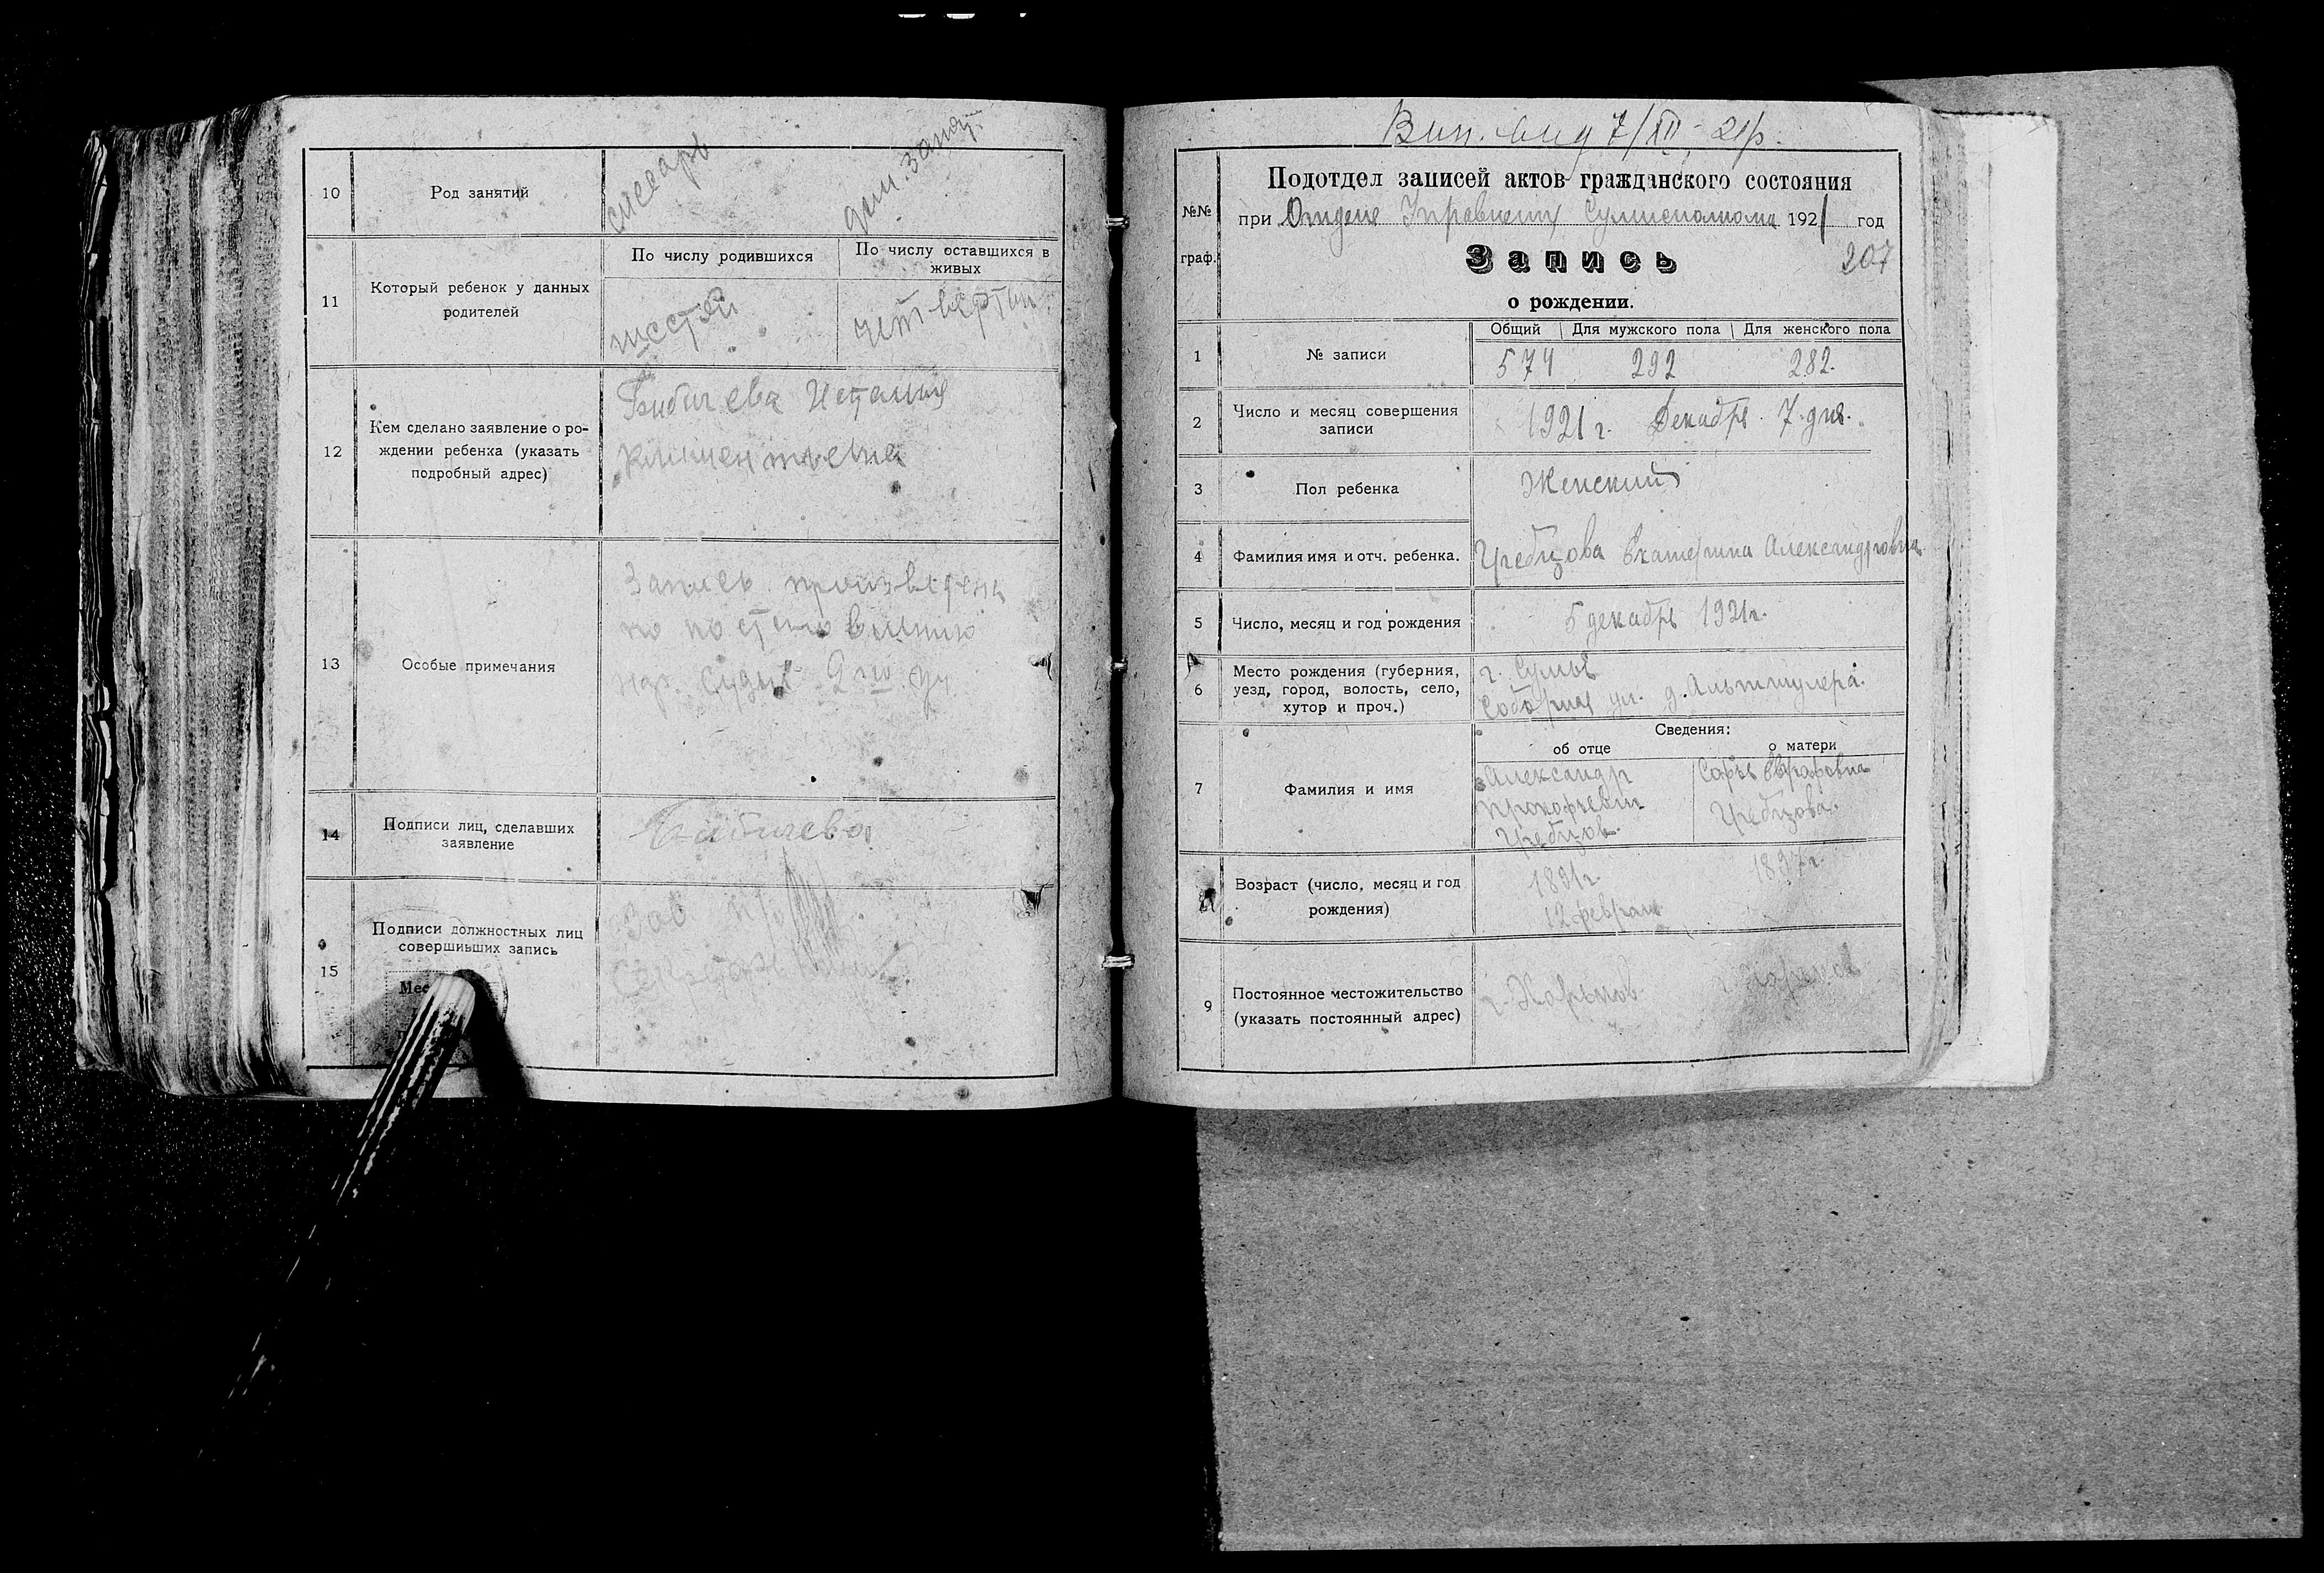 10 Род занятий слесарь дом. занят.
11 Который ребенок у данных родителей
По числу родившихся По числу оставшихся в живых
шестой четвертый
12 Кем сделано заявление о ро-
ждении ребенка (указать
подробный адрес)
Бибичева
13 Особые примечания
Запись произведена
по постановлению
нар. Судьи 2го уч
14 Подписи лиц, сделавших
заявление
Бибичева
15 Подписи должностных лиц
совершивших запись
Зав
7/XII 21р.
№№ граф.
Подотдел записей актов гражданского состояния
при Отделе Управления Сумисполкома 1921 год
Запись
207
о рождении.
Общий Для мужского пола Для женского пола
1 № записи 574 292 282.
2 Число и месяц совершения
записи
1921 г. Декабря 7 дня.
3 Пол ребенка Женский
4 Фамилия имя и отч. ребенка. Гребцова Екатерина Александровна
5 Число, месяц и год рождения 5 декабря 1921г.
6 Место рождения (губерния,
уезд, город, волость, село,
хутор и проч.)
г. Сумы
Соборная ул. д. Альтшулера.
Сведения:
об отце о матери
7 Фамилия и имя
Александр
Прокофьевич
Гребцов.
Гребцова.
Возраст (число, месяц и год
рождения)
1891г. 1897г.
12 февраля
9 Постоянное местожительство
(указать постоянный адрес)
г. Харьков г. Харьков